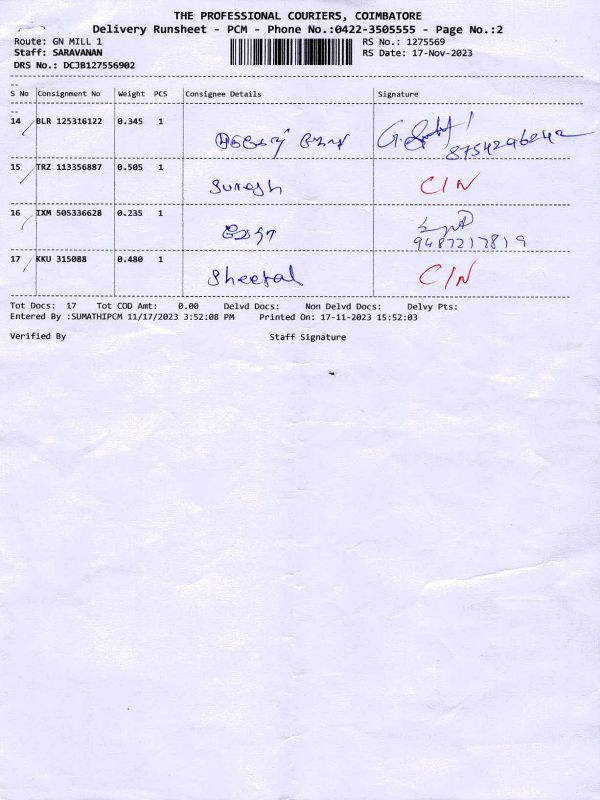 THE PROFESSIONAL COURIERS, COIMBATORE
Delivery Runsheet - PCM - Phone No.:0422-3505555 - Page No.:2
Route: GN MILL 1 RS No.: 1275569
Staff: SARAVANAN RS Date: 17-Nov-2023
DRS No.: DCJB127556902
S No Consignment No Weight PCS Consignee Details Signature
14 BLR 125316122 0.345 1
8754296242
15 TRZ 113356887 0.505 1 Suresh C/N
16 IXM 505336628 0.235 1
9487217819
17 KKU 315088 0.480 1 Sheetal C/N
Tot Docs: 17 Tot COD Amt: 0.00 Delvd Docs: Non Delvd Docs: Delvy Pts:
Entered By :SUMATHIPCM 11/17/2023 3:52:08 PM Printed On: 17-11-2023 15:52:03
Verified By Staff Signature